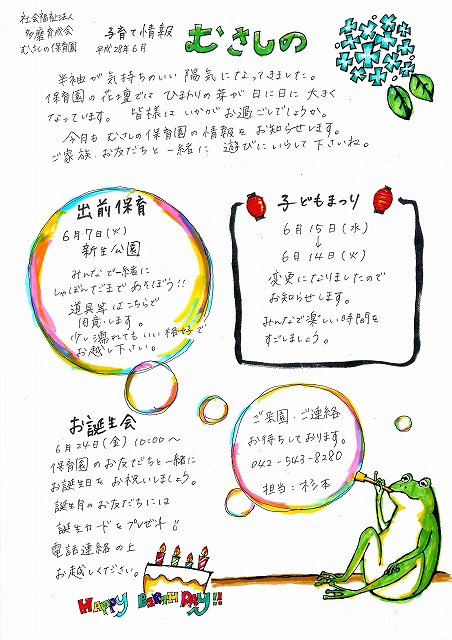 社会福祉法人
多摩育成会
むさしの保育園
子育て情報
平成28年6月
むさしの
半袖が気持ちのいい陽気になってきました。
保育園の花壇では ひまわりの芽が日に日に大きく
なっています。 皆様はいかがお過ごしでしょうか。
今月も むさしの保育園の情報を お知らせします。
ご家族、お友だちと一緒に 遊びにいらして下さいね。
出前保育
6月7日(火)
新生公園
みんなで一緒に
しゃぼんだまであそぼう!!
道具等はこちらで
用意します。
少し濡れてもいい格好で
お越し下さい。
子どもまつり
6月15日(水)
↓
6月14日(火)
変更になりましたので
お知らせします。
みんなで楽しい時間を
すごしましょう。
お誕生会
6月24日(金) 10:00〜
保育園のお友だちと一緒に
お誕生日を お祝いしましょう。
誕生月のお友だちには
誕生カードをプレゼント
電話連絡の上
お越しください。
ご来園、ご連絡
お待ちしております。
042-543-8280
担当:杉本
HAPPY BIRTHDAY!!